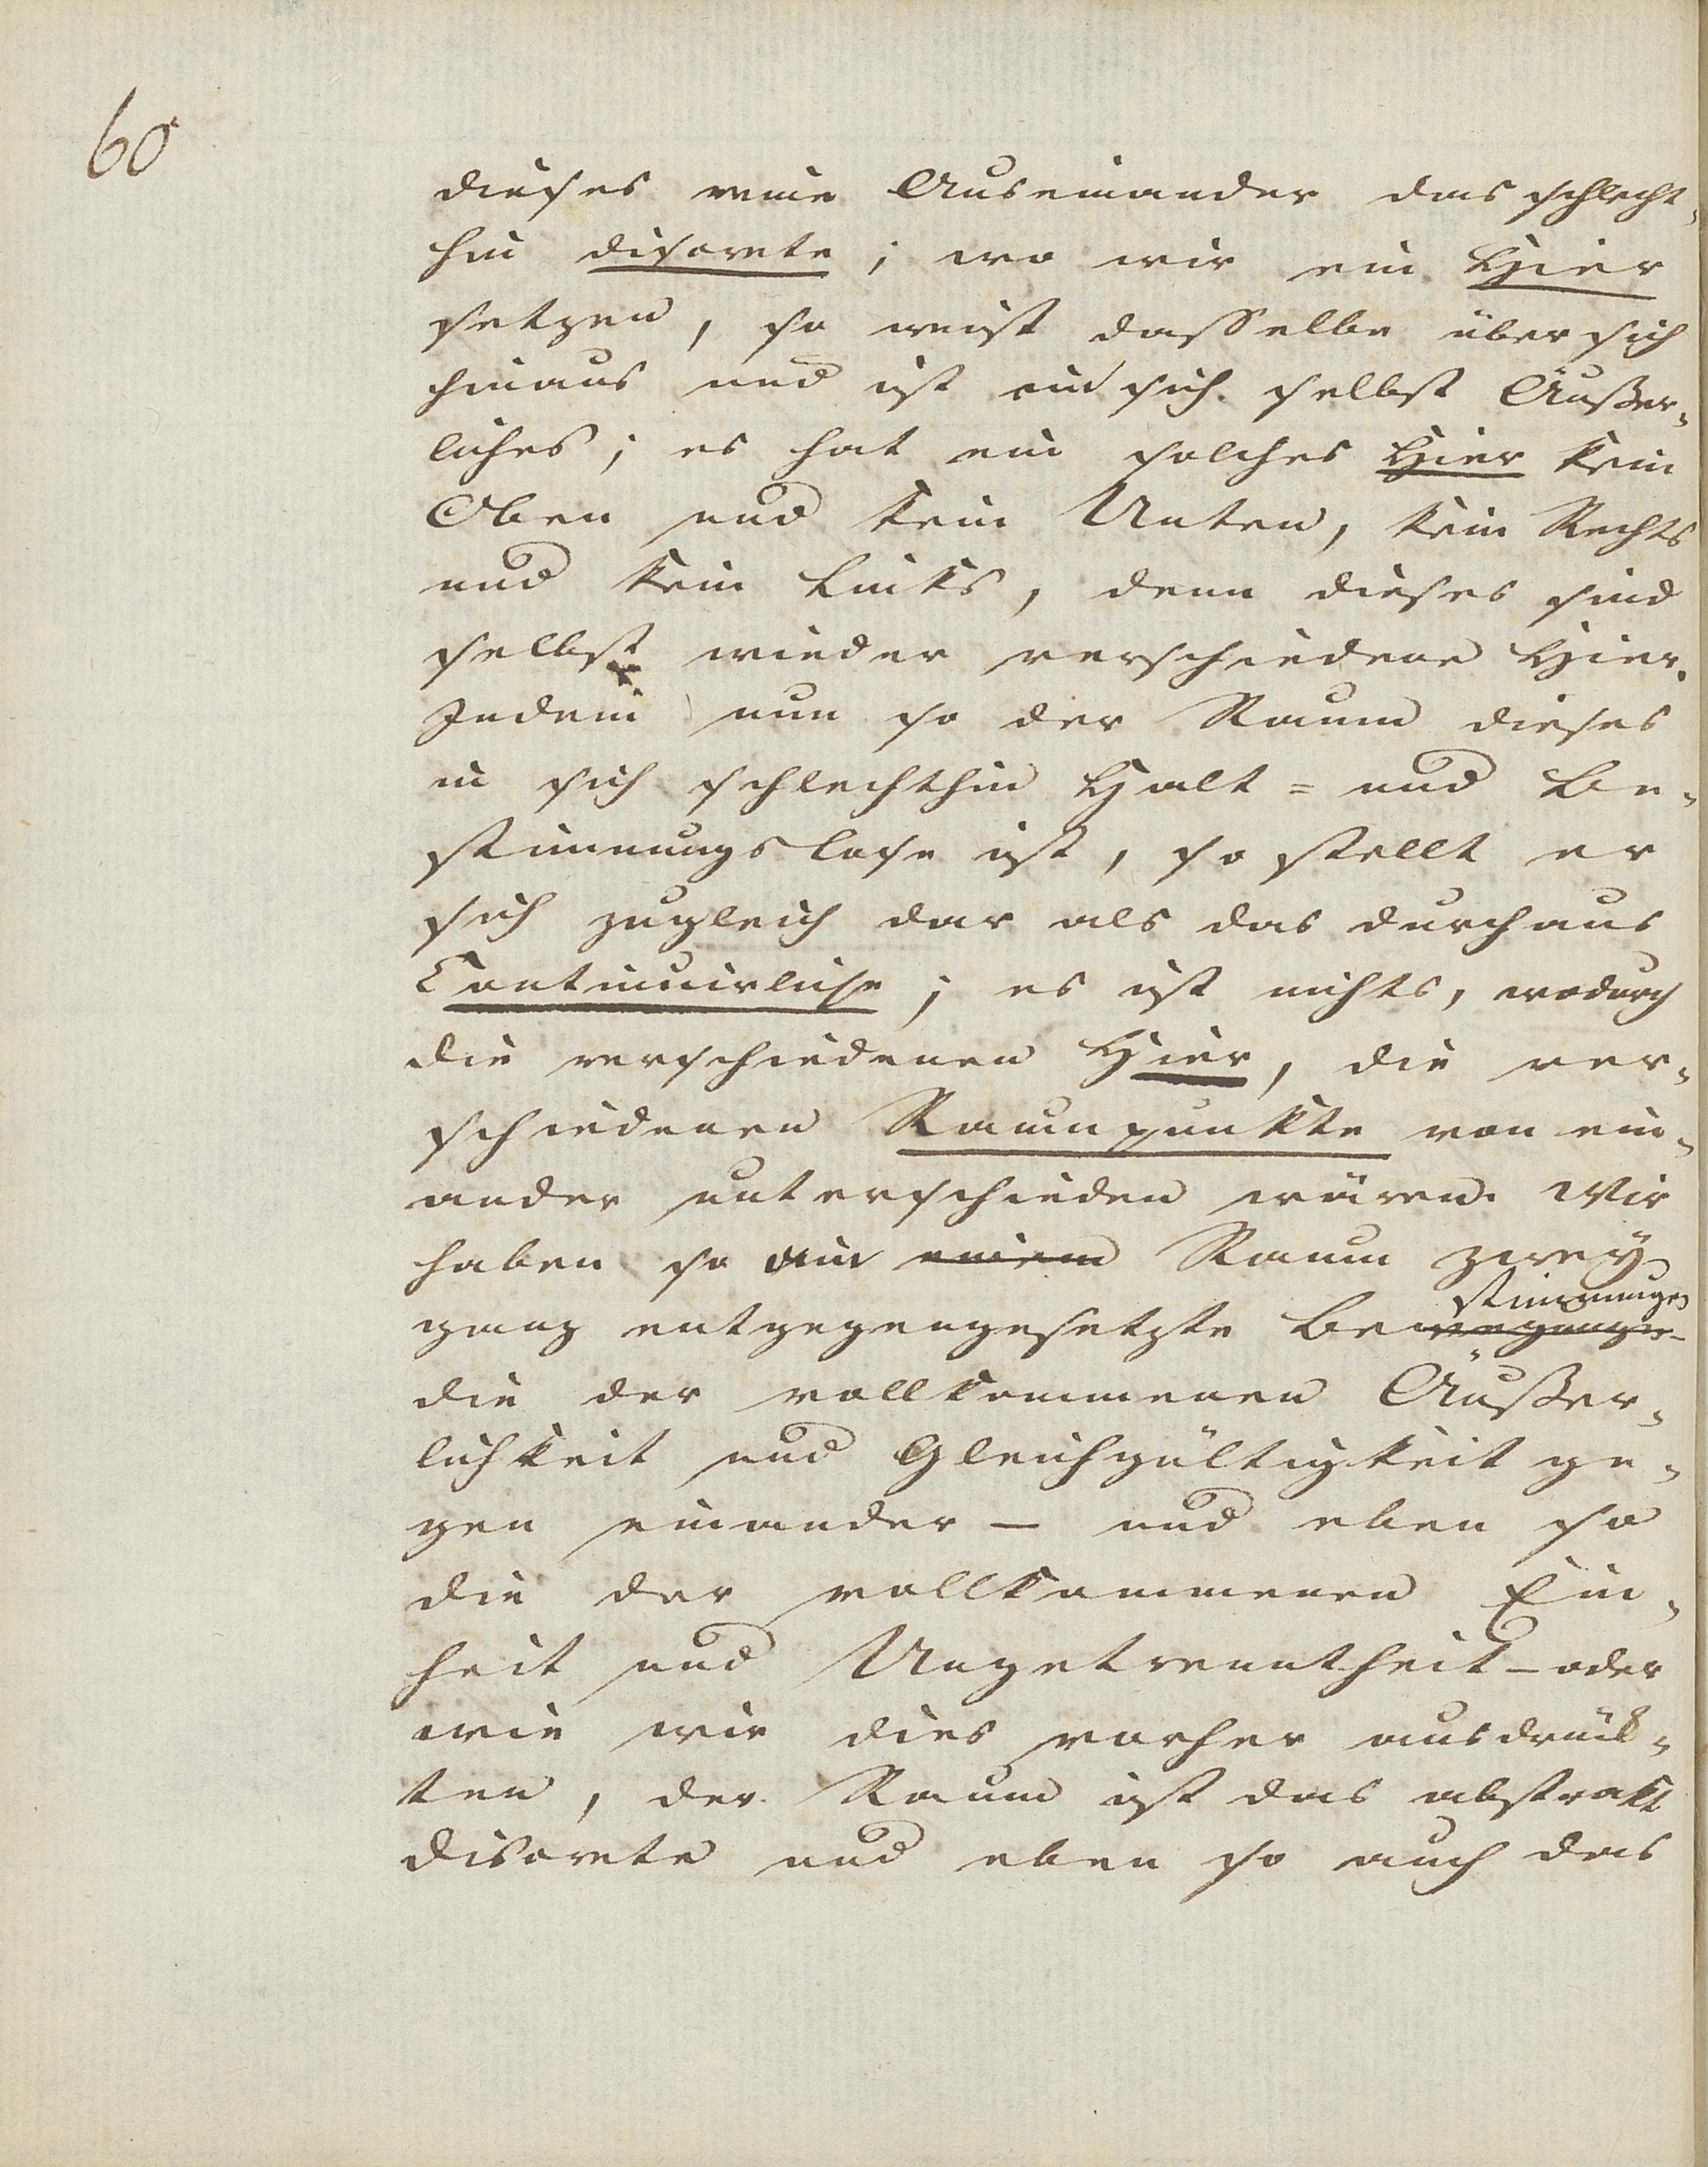 60
dieses reine Auseinander das schlecht-
hin discrete; wo wir ein Hier
setzen, so weist dasselbe über sich
hinaus und ist ein sich selbst Äußer-
liches; es hat ein solches Hier kein
Oben und kein Unten, kein Rechts
und kein Links, denn dieses sind
selbst wieder verschiedene Hier.
Indem nun so der Raum dieses
in sich schlechthin Halt= und Be-
stimmungslose ist, so stellt er
sich zugleich dar als das durchaus
Continuirliche; es ist nichts, wodurch
die verschiedenen Hier, die ver-
schiedenen Raumpunkte von ein-
ander unterschieden wären. Wir
haben so am einem Raum zwey
stimmungen
ganz entgegengesetzte Bewegungen
die der vollkommenen Äußer-
lichkeit und Gleichgültigkeit ge-
gen einander – und eben so
die der vollkommenen Ein-
heit und Ungetrenntheit – oder
wie wir dies vorher ausdrück-
ten, der Raum ist das abstrakt
Discrete und eben so auch das